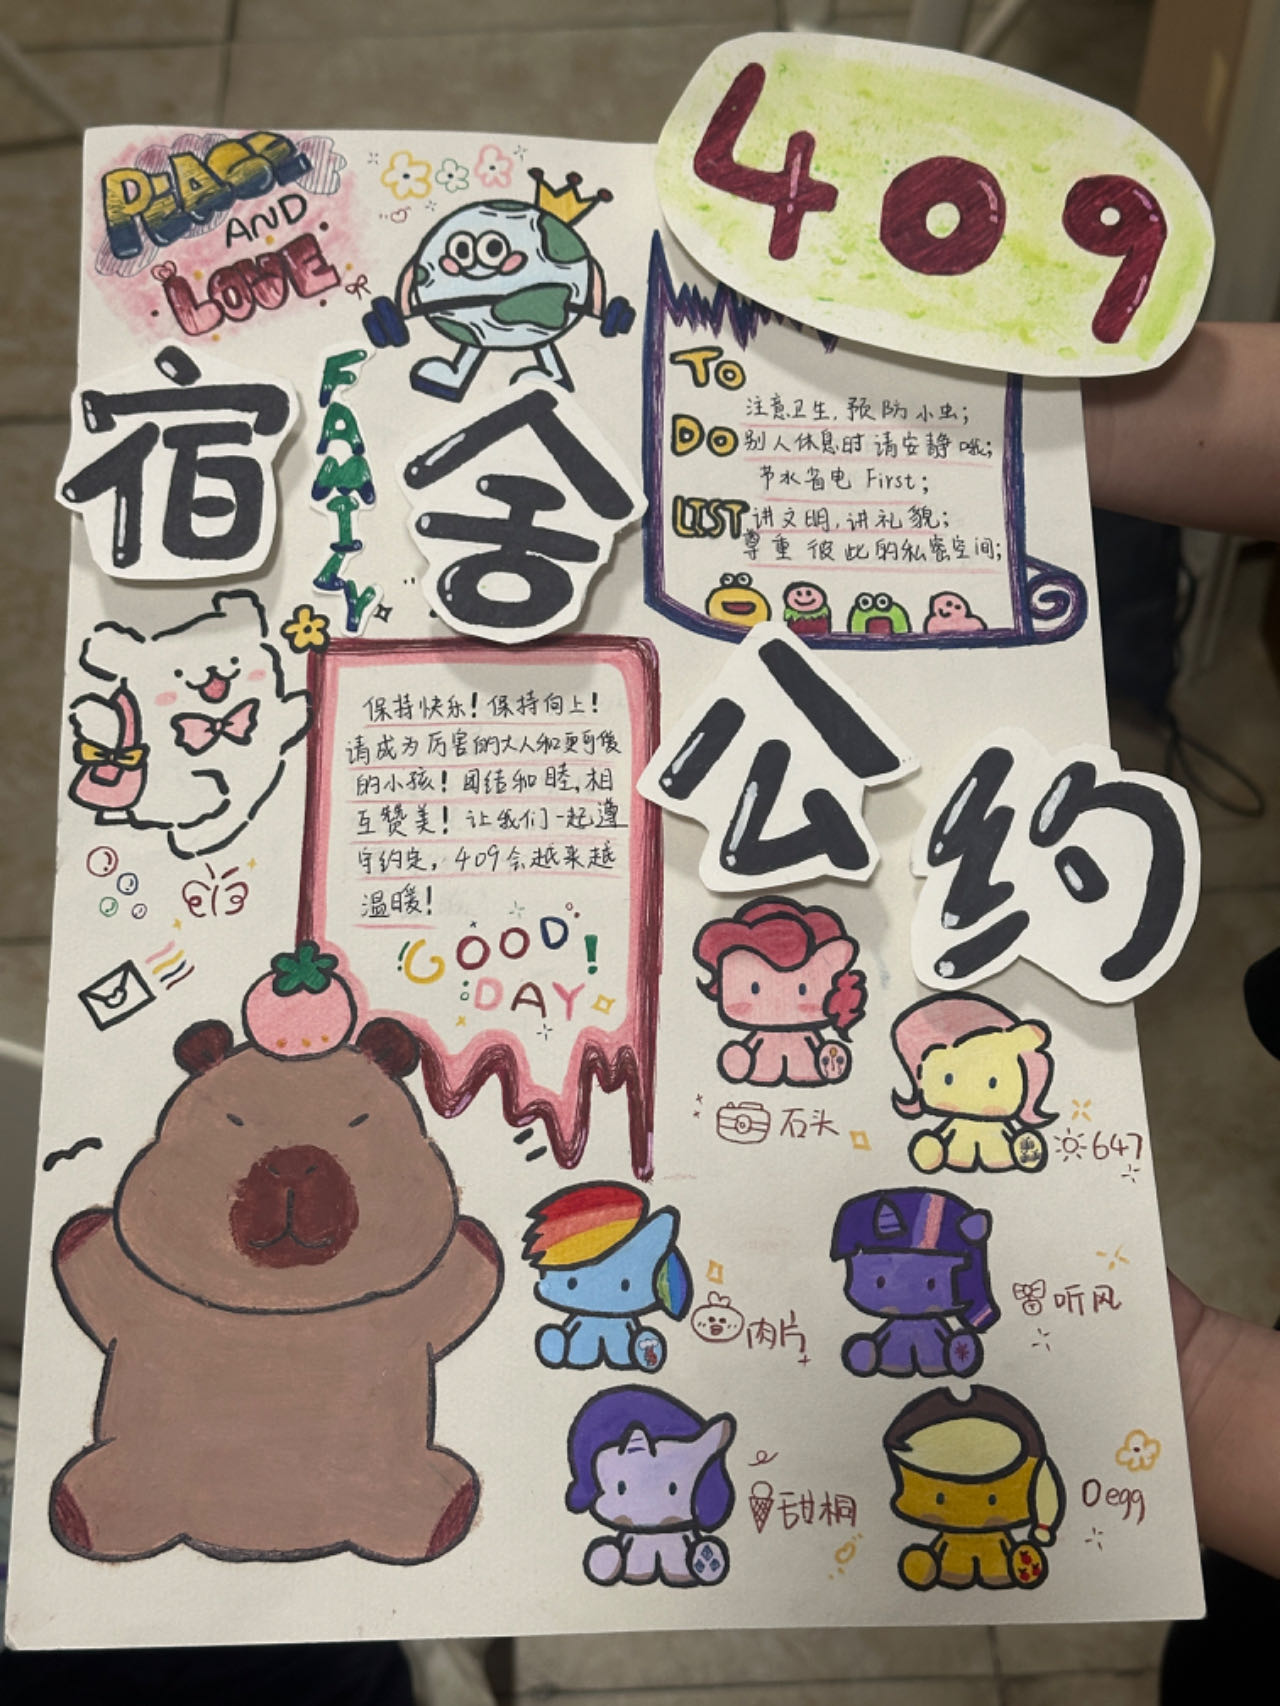 PEACE
AND
LOVE
409
宿舍公约
FAMILY
TO
DO
LIST
注意卫生,预防小虫;
别人休息时请安静哦;
节水省电 First;
讲文明,讲礼貌;
尊重彼此的私密空间;
保持快乐!保持向上!
请成为厉害的大人和更可爱
的小孩!团结和睦,相
互赞美!让我们一起遵
守约定,409会越来越
温暖!
GOOD
DAY
!
石头
647
肉片
听风
甜桐
Degg